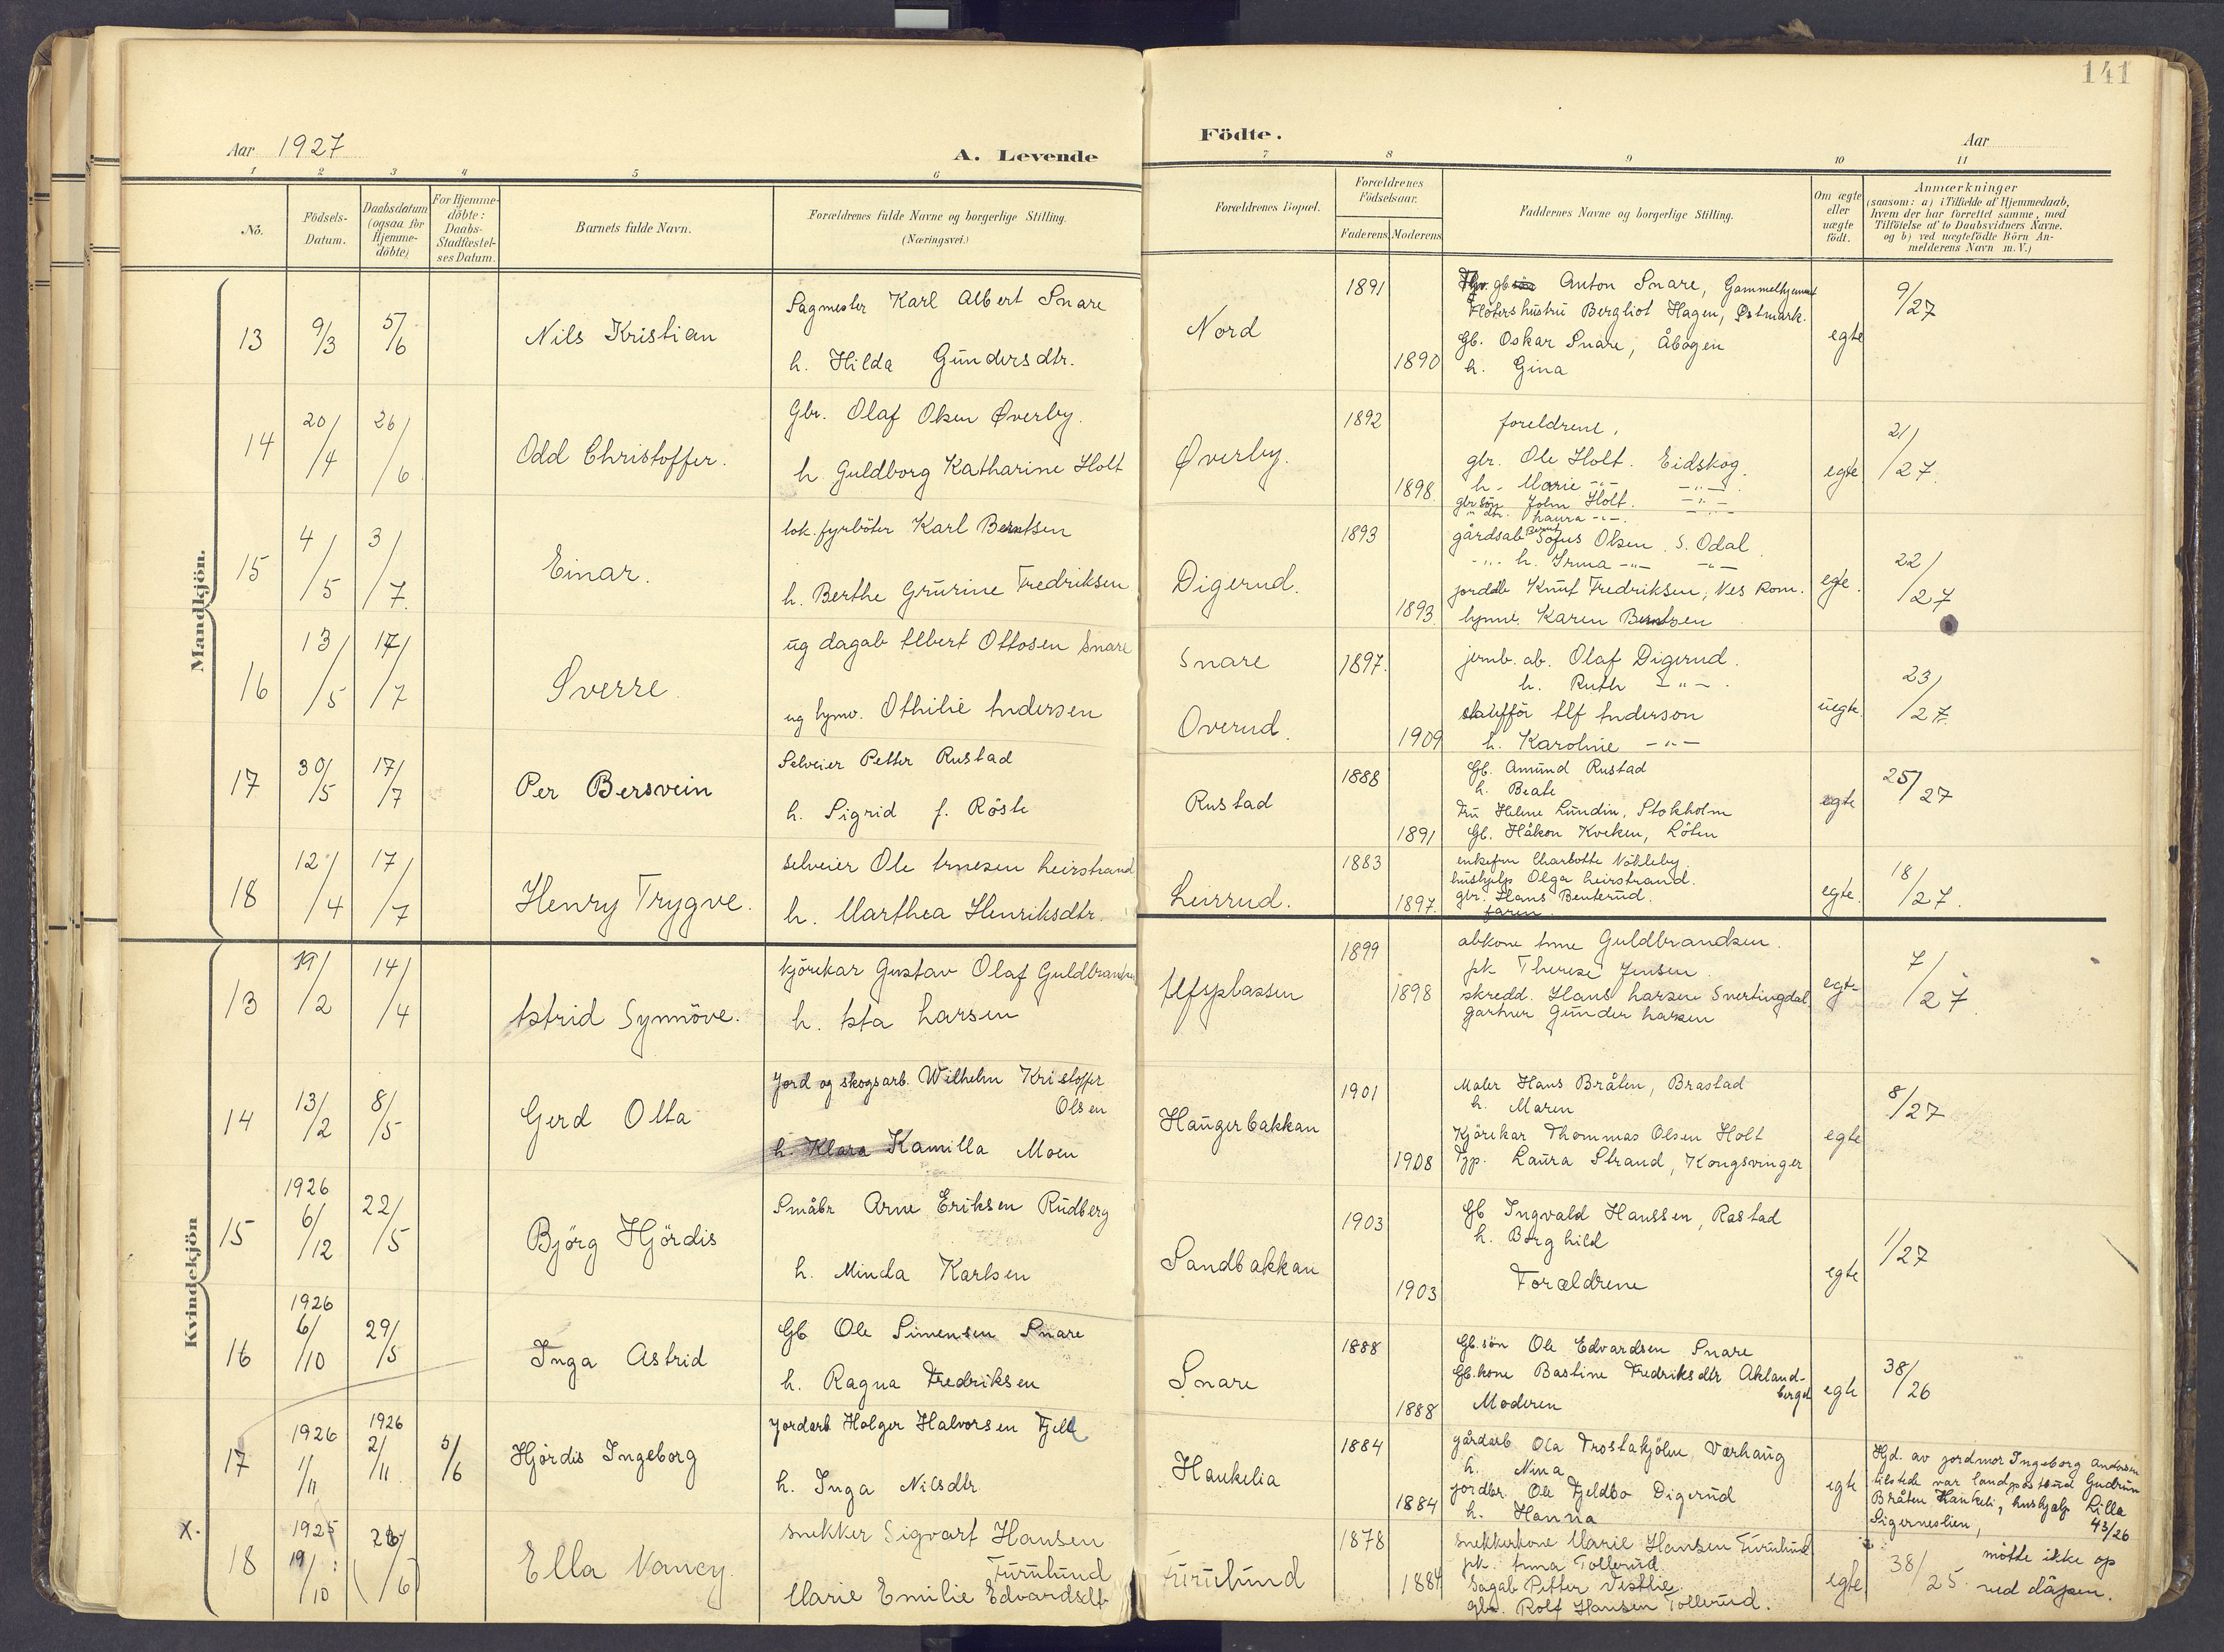 141
Aar 1927
A. Levende
Födte.
Aar
1 2 3 4 5 6 7 8 9 10 11
No.
Födsels-Datum.
Daabsdatum (ogsaa for Hjemme-döbte)
For Hjemme-döbte: Daabs-Stadfæstel-ses Datum.
Barnets fulde Navn.
Forældrenes fulde Navne og borgerlige Stilling.
(Næringsvei.)
Forældrenes Bopæl.
Forældrenes Födselsaar.
Faderens Moderens
Faddernes Navne og borgerlige Stilling.
Om ægte eller uægte födt.
Anmærkninger
(saasom: a) i Tilfælde af Hjemmedaab,
hvem der har forrettet samme, med
Tilföielse af to Daabsvidners Navne.
og b) ved uægtefödte Börn An-
melderens Navn m. V.)
Mandkjön.
13 9/3 5/6 Nils Kristian
Sagmester Karl Albert Snare
h. Hilda Gundersdtr.
Nord 1891 1890
gb Anton Snare, Gammelhjemmet
Fløterhustru Bergliot Hagen, Østmark.
Gb. Oskar Snare, Åbogen
h. Gina
egte 9/27
14 20/4 26/6 Odd Christoffer.
Gbr. Olaf Olsen Øverby.
h. Guldborg Katharine Holt
Øverby. 1892 1898.
foreldrene.
gbr. Ole Holt. Eidskog.
h. Marie -"- -"-
gbr. søn John Holt. -"-
" dtr. Laura -"-
egte 21/27.
15 4/5 3/7. Einar.
lok. fyrböter Karl Berntsen
h. Berthe Grurine Fredriksen
Digerud. 1893 1893.
gårdsab Bernt Sofus Olsen. S. Odal.
-"- h. Irma -"- -"-
jordab Knut Fredriksen, Nes Rom.
hjemv. Karen Berntsen
egte. 22/27
16 13/5 17/7 Sverre.
ug dagab Albert Ottosen Snare
ug hjmv. Othilie Andersen
Snare
Overud. 1897. 1909
jernb. ab. Olaf Digerud.
h. Ruth -"-.
Alf Anderson
h. Karoline -"-
uegte. 23/27.
17 30/5 17/7 Per Bersvein
Selveier Petter Rustad
h. Sigrid f. Röste
Rustad 1888 1891
Gb. Amund Rustad
h. Beate
Fru Helene Lundin, Stokholm
Gb. Håkon Kveken, Löten
egte 25/27
18 12/4 17/7 Henry Trygve.
selveier Ole Arnesen Leirstrand
h. Marthea Henriksdtr.
Leirrud. 1883 1897.
enkefru Charlotte Nökleby
hushjelp Olga Leirstrand.
gbr. Hans Benterud.
faren.
egte. 18/27.
Kvindekjön
13 19/2 14/4 Astrid Synnöve.
kjörekar Gustav Olaf Guldbrandsen
h. Asta Larsen
Alfsplassen 1899 1898
abkone Anne Guldbrandsen.
pk Therese Jensen.
skredd. Hans Larsen Snertingdal
gartner Gunder Larsen
egte 7/27.
14 13/2 8/5 Gerd Otta
Jord og skogsarb. Wilhelm Kristoffer
Olsen
h. Klara Kamilla Moen
Haugerbakkan 1901 1908
Maler Hans Bråten, Brastad
h. Maren
Kjörekar Thommas Olsen Holt
Tjp. Laura Strand, Kongsvinger
egte 8/27
15 1926 6/12 22/5 Björg Hjördis
Småbr Arne Eriksen Rudberg
h. Minda Karlsen
Sandbakkan 1903 1903
Gb Ingvald Hanssen, Rastad
h. Borghild
Forældrene
egte 1/27
16 1926 6/10 29/5 Inga Astrid
Gb Ole Simensen Snare
h. Ragna Fredriksen
Snare 1888 1888
Gb.sön Ole Edvardsen Snare
Gb.kone Bastine Fredriksdtr Akland-
berget
Moderen
egte 38/26
17 1926 1/11 1926 2/11 5/6 Hjördis Ingeborg
Jordarb Holger Halvorsen Fjell
h. Inga Nilsdtr
Haukelia 1884 1884
gårdarb Ola Trostakjölen, Varhaug
h. Nina
jordbr. Ole Fjeldbo Digerud
h. Hanna
egte
Hjd. av jordmor Ingeborg Andersen
tilstede var landpostbud Gudrun
Bråten Haukeli, hushjelp Lilla
Sigerneslien, 43/26
X.
18 1925 19/10 26/6 Ella Nancy.
snekker Sigvart Hansen
Furulund
Marie Emilie Edvardsdtr
Furulund 1878 1884
snekkerkone Marie Hansen Furulund
pk. Anna Tollerud.
Sagab Petter Vestlie
gbr. Rolf Hansen Tollerud.
egte 38/25.
mötte ikke op
ved dåpen.